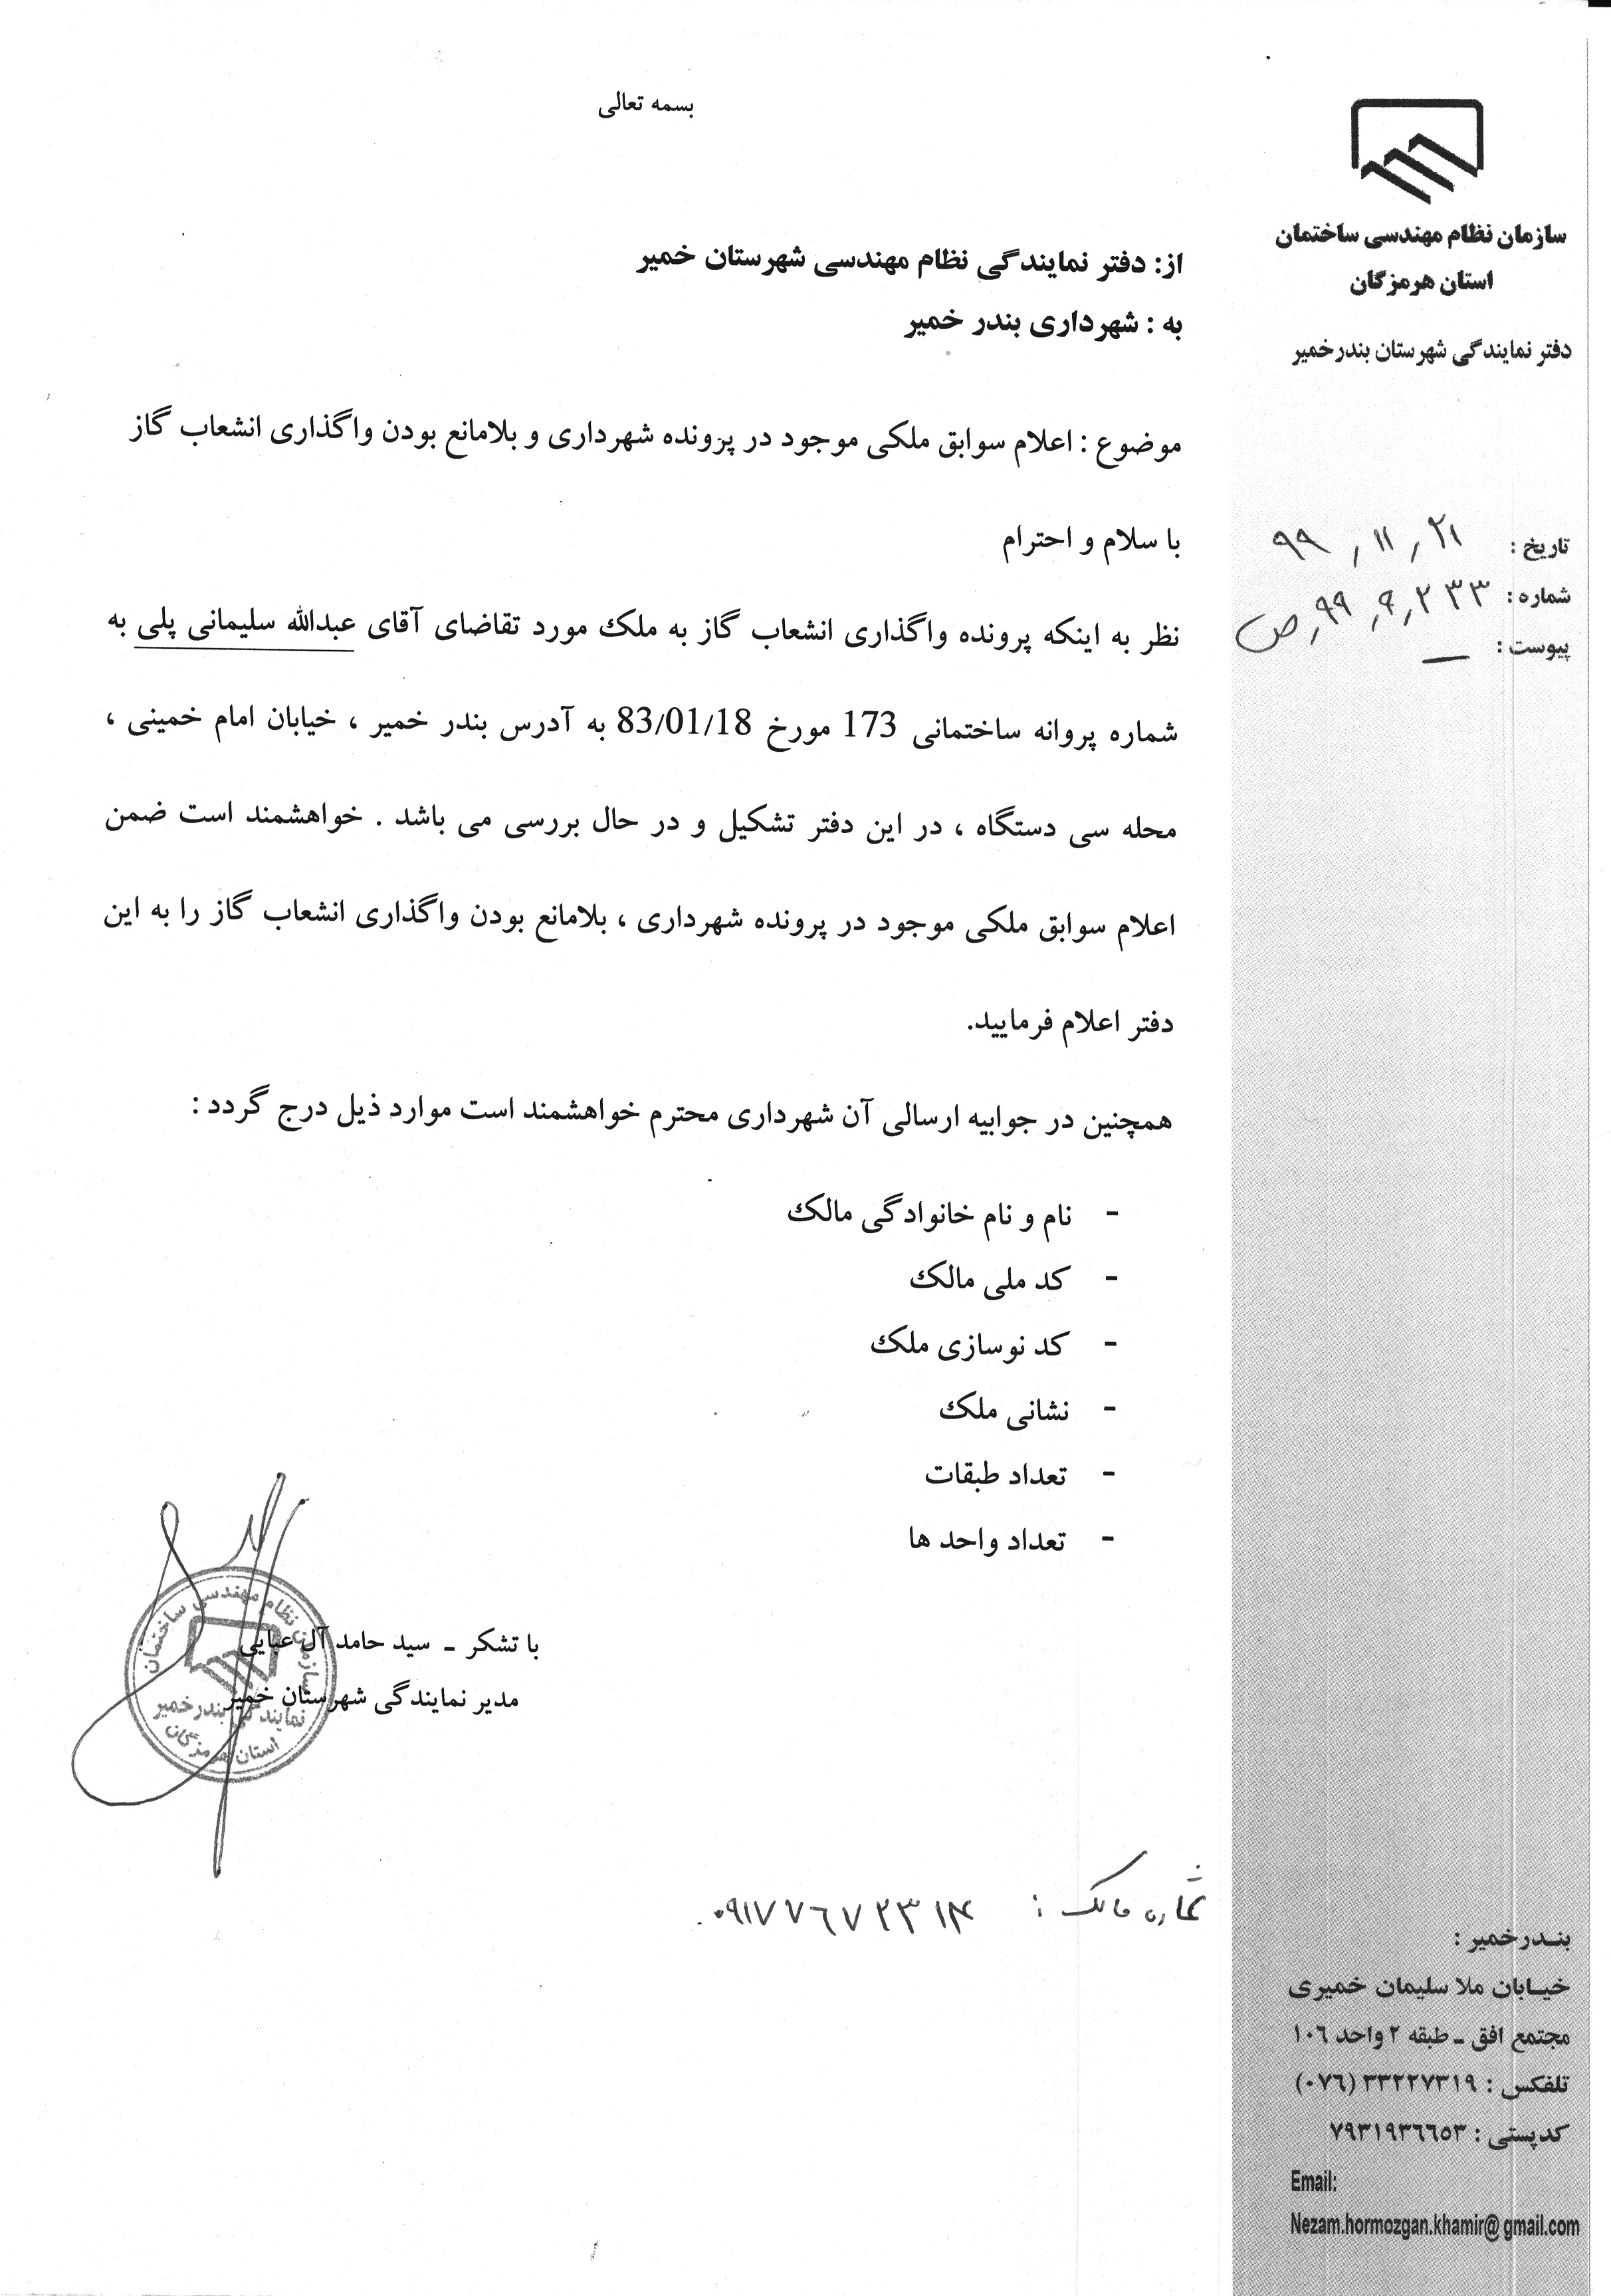 بسمه تعالی
سازمان نظام مهندسی ساختمان
استان هرمزگان
دفتر نمایندگی شهرستان بندرخمیر
تاریخ : ۹۹ , ۱۱ , ۲۱
شماره : ۲۳۳ , ۹ , ۹۹ , ص
پیوست : —
از: دفتر نمایندگی نظام مهندسی شهرستان خمیر
به : شهرداری بندر خمیر
موضوع : اعلام سوابق ملکی موجود در پرونده شهرداری و بلامانع بودن واگذاری انشعاب گاز
با سلام و احترام
نظر به اینکه پرونده واگذاری انشعاب گاز به ملک مورد تقاضای آقای عبدالله سلیمانی پلی به
شماره پروانه ساختمانی 173 مورخ 83/01/18 به آدرس بندر خمیر ، خیابان امام خمینی ،
محله سی دستگاه ، در این دفتر تشکیل و در حال بررسی می باشد . خواهشمند است ضمن
اعلام سوابق ملکی موجود در پرونده شهرداری ، بلامانع بودن واگذاری انشعاب گاز را به این
دفتر اعلام فرمایید.
همچنین در جوابیه ارسالی آن شهرداری محترم خواهشمند است موارد ذیل درج گردد :
- نام و نام خانوادگی مالک
- کد ملی مالک
- کد نوسازی ملک
- نشانی ملک
- تعداد طبقات
- تعداد واحد ها
با تشکر ـ سید حامد آل عبایی
مدیر نمایندگی شهرستان خمیر
سازمان نظام مهندسی ساختمان
نمایندگی بندرخمیر
استان هرمزگان
شماره مالک : ۰۹۱۷۷۶۷۲۳۱۴
بندرخمیر :
خیابان ملا سلیمان خمیری
مجتمع افق ـ طبقه ۲ واحد ۱۰۶
تلفکس : ۳۳۲۲۷۳۱۹ (۰۷۶)
کدپستی : ۷۹۳۱۹۳۶۶۵۳
Email:
Nezam.hormozgan.khamir@gmail.com